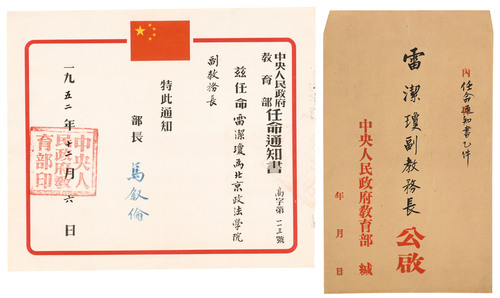 中央人民政府
教育部
任命通知書
高字第 號
茲任命雷潔瓊為北京政法學院
副教務長
特此通知
部長 馬叙倫
一九五二年十二月六日
中央人
民政府教
育部印
內任命通知書乙件
雷潔瓊副教務長 公啟
中央人民政府教育部 緘
年 月 日